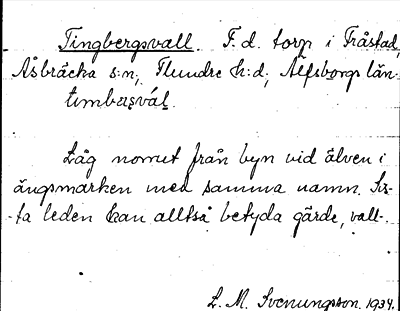 Tingbergsvall. F. d. torp i Fråstad,
Åsbräcka s:n, Flundre h:d, Älfsborgs län.
timbæsväl.
Låg norrut från byn vid älven i
ängsmarken med samma namn. Sis-
-ta leden kan alltså betyda gärde, vall-.
L. M. Svenungsson. 1934.